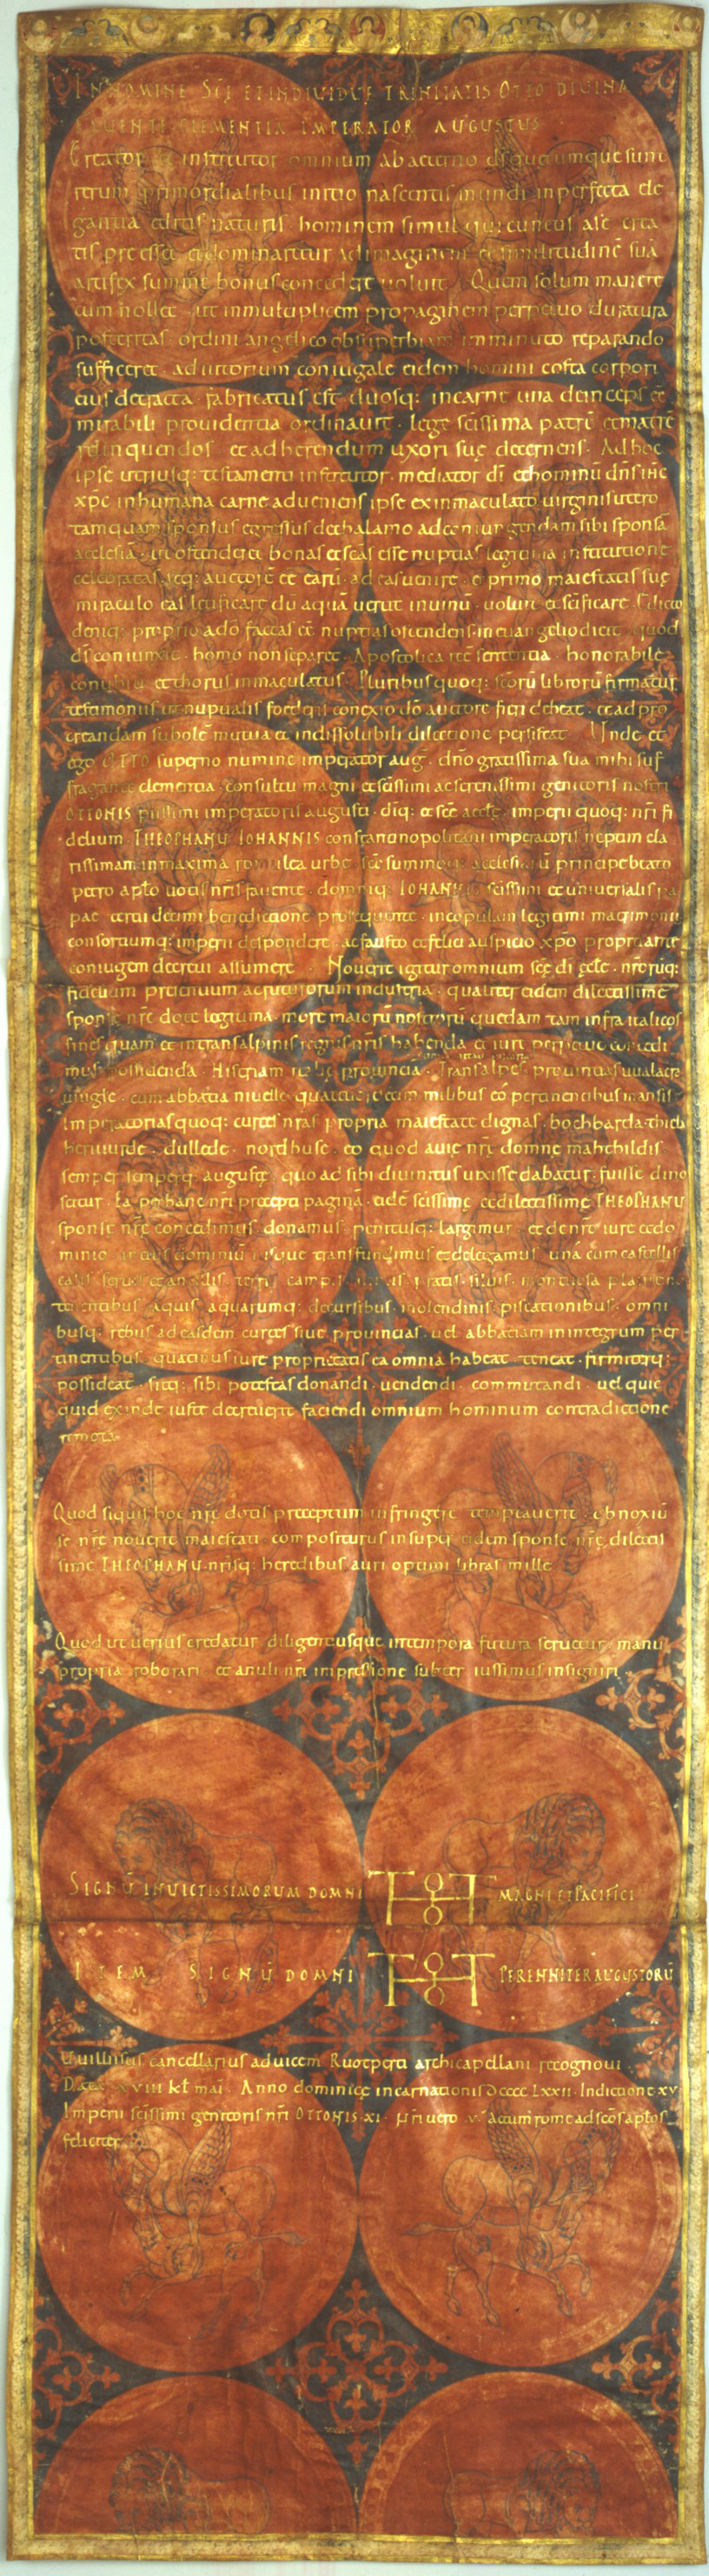 IN NOMINE SCĘ ET INDIVIDUĘ TRINITATIS OTTO DIVINA
FAVENTE CLEMENTIA IMPERATOR AUGUSTUS
Creator et institutor omnium ab aeterno ds quicumque sunt
rerum primordialibus initio nascentis mundi inperfecta ele
gantia editis naturis hominem simul qui cunctis
tis preesset et dominaretur ad imaginem et similitudinē suā
artifex summe bonus voluit Quem solum manere
cum nollet ut in multiplicem propaginem perpetuo duratura
posteritas ordini angelico ob superbiam imminuto reparando
sufficeret adiutorium coniugale eidem homini costa corpori
eius detracta fabricatus est duosq: in carne una deinceps eē
mirabili providentia ordinavit lege scissima patrē et matrē
relinquendos et adherendum uxori suę decernens Ad hoc
ipse utriusq: testamenti institutor mediator di et hominū dns ihc
xpc in humana carne adveniens ipse ex inmaculato virginis utero
tamquam sponsus egressus de thalamo ad coniungendam sibi sponsā
aecclesiā ut ostenderet bonas et scās esse nuptias legitima institutione
celebratas seq: auctorē eē earū ad eas venire et primo maiestatis suę
miraculo eas letificare dū aquā vertit in vinū voluit et scificare Edicto
deniq: proprio a do factas eē nuptias ostendens in euangelio dicit quod
ds coniunxit homo non separet Apostolica itē sententia honorabile
conubiū et thorus inmaculatus Pluribus quoq: scorū librorū firmatur
testimoniis ut nuptialis foederis conexio dō auctore fieri debeat et ad pro
creandam subolē mutua et indissolubili dilectione persistat Unde et
ego OTTO superno numine imperator aug dnō gratissima sua mihi suf
fragante clementia consultu magni et scissimi ac serenissimi genitoris nostri
OTTONIS piissimi imperatoris augusti diq: et scē aecclē imperii quoq: nri fi
delium THEOPHANU IOHANNIS constantinopolitani imperatoris neptim cla
rissimam in maxima romulea urbe scō summoq: aecclesiarū principe beato
petro aplō votis nris favente domniq: IOHANNIS scissimi et universalis pa
pae tertii decimi benedictione prosequente in copulam legitimi matrimonii
consortiumq: imperii despondere ac fausto et felici auspicio xpō propitiante
coniugem decrevi assumere Noverit igitur omnium scę di ęcclę nrorūq:
fidelium presentium ac futurorum industria qualiter eidem dilectissimę
sponsę nrę dote legitima more maiorū nostrorū quedam tam infra italicos
fines quam et in transalpinis regnis nris habenda et iure perpetuo concedi
mus possidenda Histriam provincia Transalpes provincias uualacra
uuigle cum abbatia niuelle quattuordecim milibus eo pertinentibus mansis
Imperatorias quoq: curtes nras propria maiestate dignas bochbarda thiela
heriuurde dullede nordhuse eo quod auię nrę domnę mahthildis
semper semperq: augustę quo ad sibi divinitus vixisse dabatur fuisse dino
scitur Ea per hanc nri precepti paginā eidē scissimę et dilectissimę THEOPHANU
sponsę nrę concessimus donamus penitusq: largimur et de nro iure et do
minio in eius dominiū iusque transfundimus et delegamus una cum castellis
casis servis et ancillis terris campis pratis silvis
tinentibus aquis aquarumq: decursibus molendinis piscationibus omni
busq: rebus ad easdem curtes sive provincias vel abbatiam in integrum per
tinentibus quatinus iure proprietatis ea omnia habeat teneat firmiterq:
possideat sitq: sibi potestas donandi vendendi commutandi vel quic
quid exinde iuste decreverit faciendi omnium hominum contradictione
remota
Quod siquis hoc nrę dotis preceptum infringere temptaverit obnoxiū
se nrę noverit maiestati compositurus insuper eidem sponsę nrę dilectis
simę THEOPHANU nrisq: heredibus auri optimi libras mille
Quod ut verius credatur diligentiusque in tempora futura servetur manu
propria roborari et anuli nri impressione subter iussimus insigniri
SIGNŪ INVICTISSIMORUM DOMNI MAGNI ET PACIFICI
ITEM SIGNŪ DOMNI PERENNITER AUGUSTORŪ
Uuilligisus cancellarius advicem Ruotperti archicapellani recognovi
Data XVIII kl mai Anno dominicę incarnationis Dcccc Lxxii Indictione xv
Imperii scissimi genitoris nri OTTONIS XI nri vero v Actum romę ad scos aplos
feliciter